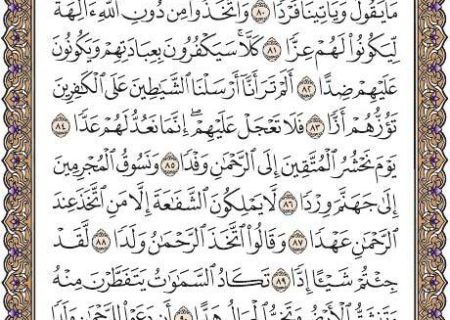 مَا يَقُولُ وَيَأْتِينَا فَرْدًا ٨٠ وَاتَّخَذُوا مِن دُونِ اللَّهِ آلِهَةً
لِّيَكُونُوا لَهُمْ عِزًّا ٨١ كَلَّا سَيَكْفُرُونَ بِعِبَادَتِهِمْ وَيَكُونُونَ
عَلَيْهِمْ ضِدًّا ٨٢ أَلَمْ تَرَ أَنَّا أَرْسَلْنَا الشَّيَاطِينَ عَلَى الْكَافِرِينَ
تَؤُزُّهُمْ أَزًّا ٨٣ فَلَا تَعْجَلْ عَلَيْهِمْ إِنَّمَا نَعُدُّ لَهُمْ عَدًّا ٨٤
يَوْمَ نَحْشُرُ الْمُتَّقِينَ إِلَى الرَّحْمَٰنِ وَفْدًا ٨٥ وَنَسُوقُ الْمُجْرِمِينَ
إِلَىٰ جَهَنَّمَ وِرْدًا ٨٦ لَّا يَمْلِكُونَ الشَّفَاعَةَ إِلَّا مَنِ اتَّخَذَ عِندَ
الرَّحْمَٰنِ عَهْدًا ٨٧ وَقَالُوا اتَّخَذَ الرَّحْمَٰنُ وَلَدًا ٨٨ لَّقَدْ
جِئْتُمْ شَيْئًا إِدًّا ٨٩ تَكَادُ السَّمَاوَاتُ يَتَفَطَّرْنَ مِنْهُ
وَتَنشَقُّ الْأَرْضُ وَتَخِرُّ الْجِبَالُ هَدًّا ٩٠ أَن دَعَوْا لِلرَّحْمَٰنِ وَلَدًا